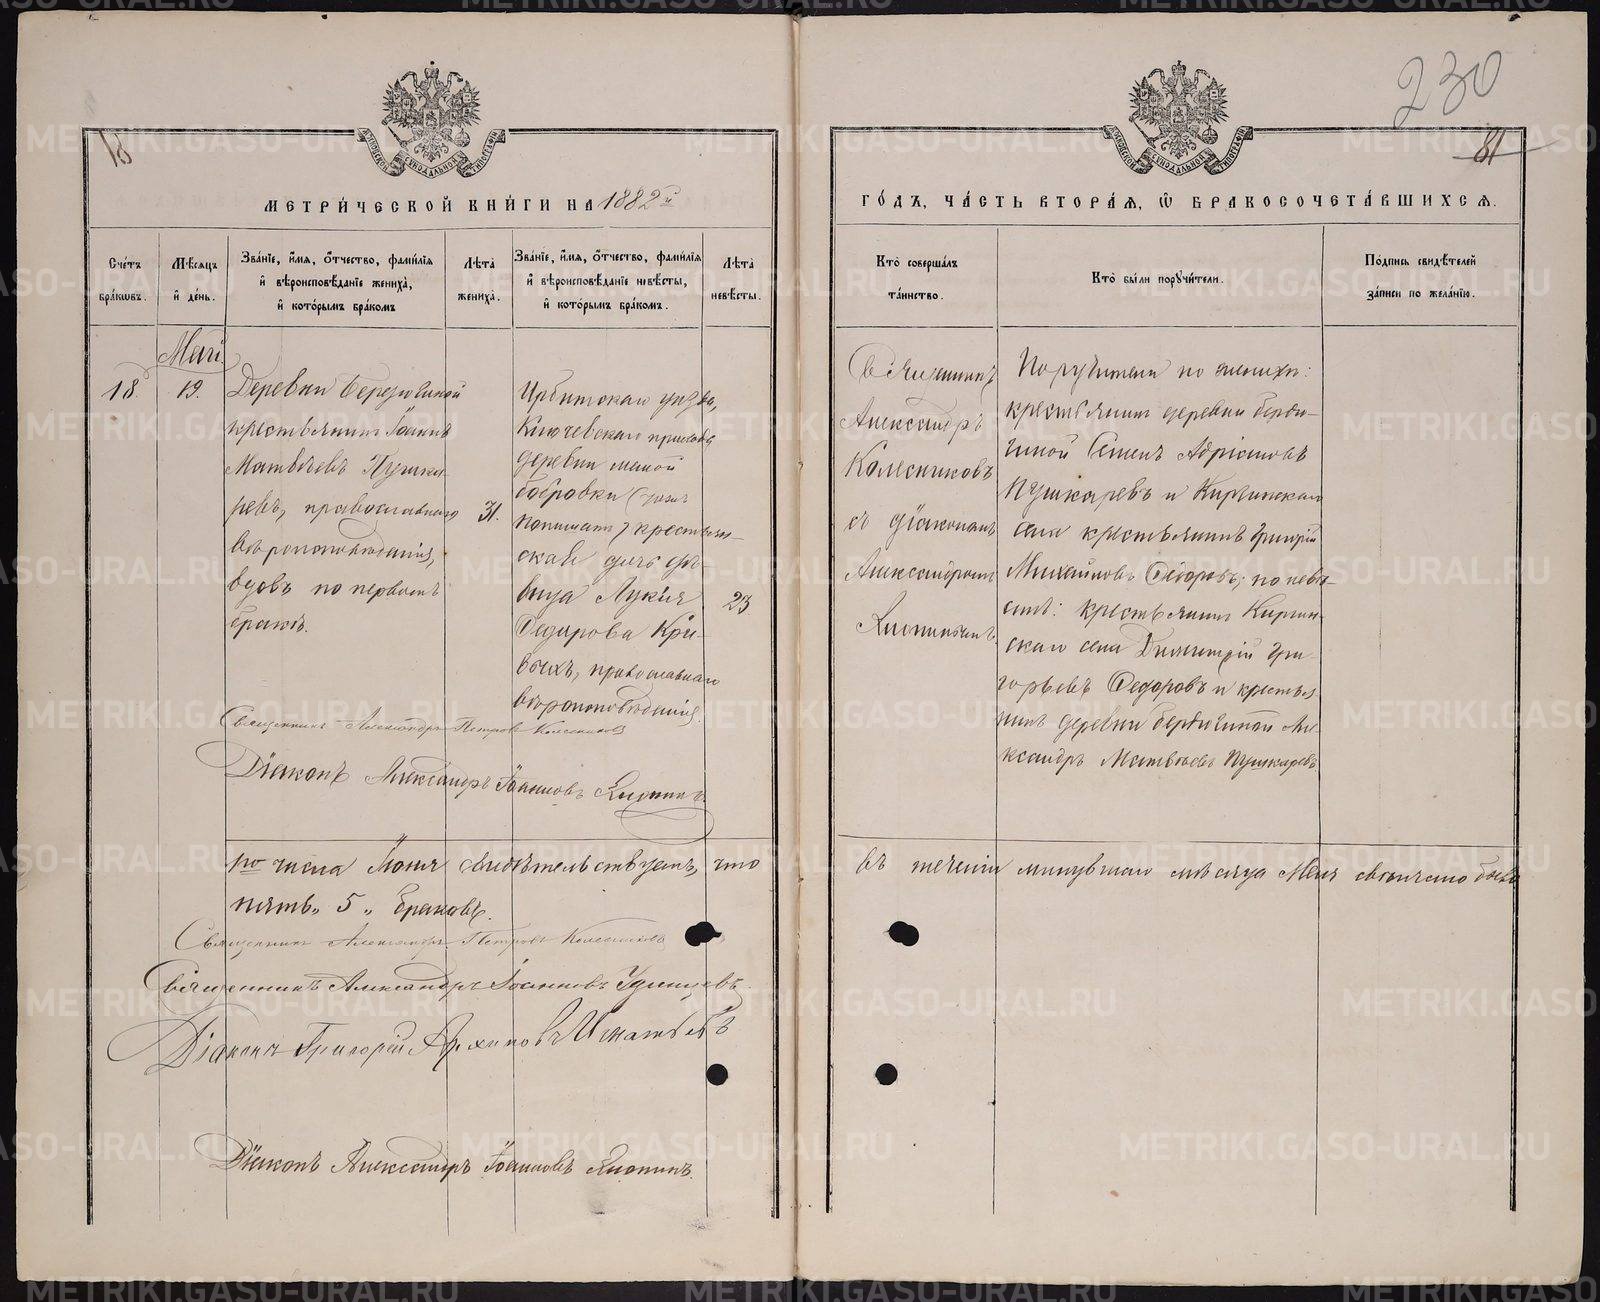 230
18
81
МЕТРИЧЕСКОЙ КНИГИ НА 1882й
ГОДЪ, ЧАСТЬ ВТОРАЯ, Ѡ БРАКОСОЧЕТАВШИХСЯ.
Счетъ браковъ.
Мѣсяцъ и день.
Званіе, имя, отчество, фамилія и вѣроисповѣданіе жениха, и которымъ бракомъ
Лѣта жениха.
Званіе, имя, отчество, фамилія и вѣроисповѣданіе невѣсты, и которымъ бракомъ.
Лѣта невѣсты.
Кто совершалъ таинство.
Кто были поручители.
Подпись свидѣтелей записи по желанію.
Маія
18.
19.
Деревни
крестьянинъ Іоаннъ
Матвѣевъ Пушка-
ревъ, православнаго
вѣроисповѣданія,
вдовъ по первомъ
бракѣ.
31.
Ирбитскаго уѣзда,
Ключевскаго прихода
деревни малой
бобровки
крестьян-
ская дочь дѣ-
вица Лукія
Ѳедорова Кри-
выхъ, православнаго
вѣроисповѣданія.
23
Священникъ
Александръ
Колесниковъ
съ діакономъ
Александромъ
Поручители по женихѣ:
крестьянинъ деревни
Семенъ Адріановъ
Пушкаревъ и Киргинскаго
села крестьянинъ Григорій
Михайловъ Ѳедоровъ; по невѣ-
стѣ: крестьянинъ Киргин-
скаго села Димитрій Гри-
горьевъ Ѳедоровъ и крестья-
нинъ деревни Але-
ксандръ Матвѣевъ Пушкаревъ
Священникъ Александръ Петровъ Колесниковъ
Діаконъ Александръ Іоанновъ
1го числа Іюня свидѣтельствуемъ, что въ теченіи минувшаго мѣсяца Маія вѣнчано было
пять „5„ браковъ.
Священникъ Александръ Петровъ Колесниковъ
Священникъ Александръ Іоанновъ Удинцевъ
Діаконъ Григорій Архиповъ Игнатьевъ
Діаконъ Александръ Іоанновъ
METRIKI.GASO-URAL.RU